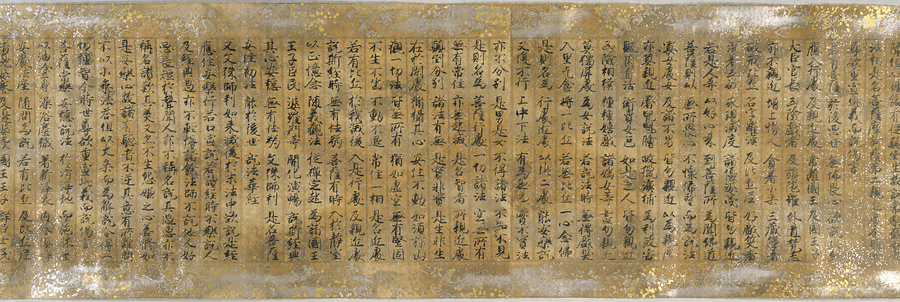 若有菩薩 於後惡世 無怖畏心 欲說是經
應入行處 及親近處 常離國王 及國王子
大臣官長 兇險戲者 及旃陀羅 外道梵志
亦不親近 增上慢人 貪著小乘 三藏學者
破戒比丘 名字羅漢 及比丘尼 好戲笑者
深著五欲 求現滅度 諸優婆夷 皆勿親近
若是人等 以好心來 到菩薩所 為聞佛道
菩薩則以 無所畏心 不懷悕望 而為說法
寡女處女 及諸不男 皆勿親近 以為親厚
亦莫親近 屠兒魁膾 畋獵漁捕 為利殺害
販肉自活 衒賣女色 如是之人 皆勿親近
兇險相撲 種種嬉戲 諸婬女等 盡勿親近
莫獨屏處 為女說法 若說法時 無得戲笑
入里乞食 將一比丘 若無比丘 一心念佛
是則名為 行處近處 以此二處 能安樂說
又復不行 上中下法 有為無為 實不實法
亦不分別 是男是女 不得諸法 不知不見
是則名為 菩薩行處 一切諸法 空無所有
無有常住 亦無起滅 是名智者 所親近處
顛倒分別 諸法有無 是實非實 是生非生
在於閑處 修攝其心 安住不動 如須彌山
觀一切法 皆無所有 猶如虛空 無有堅固
不生不出 不動不退 常住一相 是名近處
若有比丘 於我滅後 入是行處 及親近處
說斯經時 無有怯弱 菩薩有時 入於靜室
以正憶念 隨義觀法 從禪定起 為諸國王
王子臣民 婆羅門等 開化演暢 說斯經典
其心安隱 無有怯弱 文殊師利 是名菩薩
安住初法 能於後世 說法華經
又文殊師利如來滅後於末法中欲說是經
應住安樂行若口宣說若讀經時不樂說人
及經典過亦不輕慢諸餘法師不說他人好
惡長短於聲聞人亦不稱名說其過惡亦不
稱名讚歎其美又亦不生怨嫌之心善修如
是安樂心故諸有聽者不逆其意有所難問
不以小乘法答但以大乘而為解說令得一
切種智爾時世尊欲重宣此義而說偈言
菩薩常樂 安隱說法 於清淨地 而施床座
以油塗身 澡浴塵穢 著新淨衣 內外俱淨
安處法座 隨問為說 若有比丘 及比丘尼
諸優婆塞 及優婆夷 國王王子 群臣士民